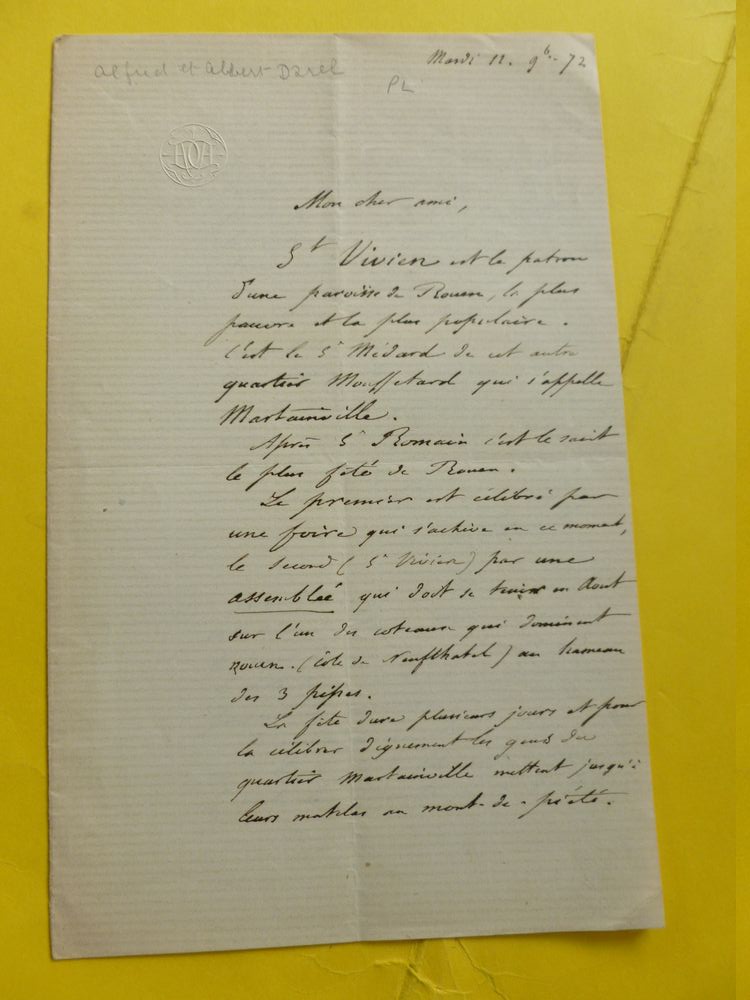 Alfred et Albert Darel
Mardi 12. 9b.- 72
PL
Mon cher ami,
St Vivien est le patron
d'une paroisse de Rouen, la plus
pauvre et la plus populaire.
C'est le St Médard de cet autre
quartier Mouffetard qui s'appelle
Martainville.
Après St Romain c'est le saint
le plus fêté de Rouen.
Le premier est célébré par
une foire qui s'achève en ce moment,
le second (St Vivien) par une
assemblée qui doit se tenir en Aout
sur l'un des coteaux qui dominent
Rouen. (Côte de Neufchatel) au hameau
des 3 pipes.
La fête dure plusieurs jours et pour
la célébrer dignement les gens du
quartier Martainville mettent jusqu'à
leurs matelas au mont-de-piété.